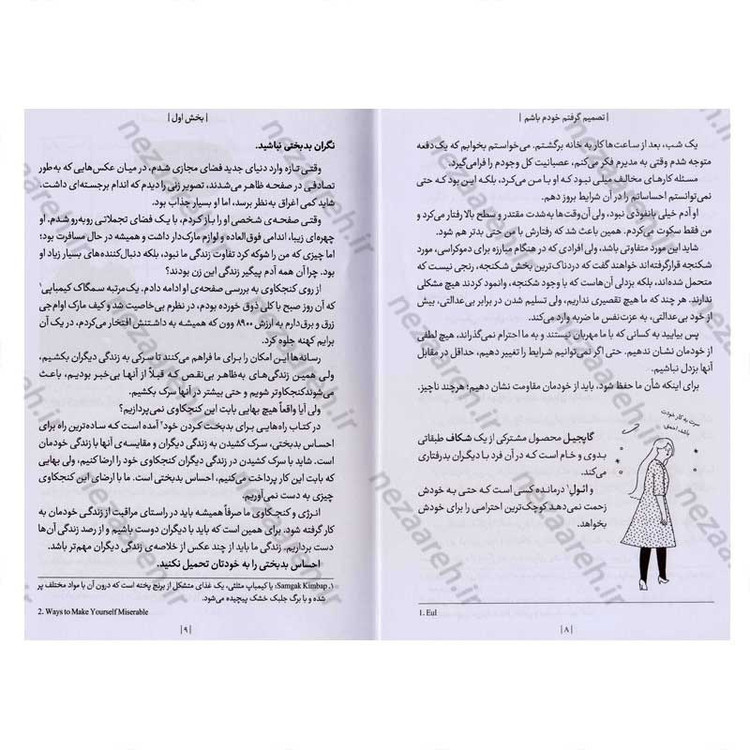 | تصمیم گرفتم خودم باشم |
یک شب، بعد از ساعت‌ها کار به خانه برگشتم. می‌خواستم بخوابم که یک‌دفعه
متوجه شدم وقتی به مدیرم فکر می‌کنم، عصبانیت کل وجودم را فرامی‌گیرد.
مسئله کارهای مخالف میلی نبود که او با من می‌کرد، بلکه این بود که حتی
نمی‌توانستم احساساتم را در آن شرایط بروز دهم.
او آدم خیلی بانفوذی نبود، ولی آن‌وقت‌ها به‌شدت مقتدر و سطح بالا رفتار می‌کرد و
من فقط سکوت می‌کردم. همین باعث شد که رفتارش با من حتی بدتر هم شود.
شاید این مورد متفاوتی باشد، ولی افرادی که در هنگام مبارزه برای دموکراسی، مورد
شکنجه قرار گرفته‌اند خواهند گفت که دردناک‌ترین بخش شکنجه، رنجی نیست که
متحمل شده‌اند، بلکه بزدلی آن‌هاست که با وجود شکنجه، وانمود کردند هیچ مشکلی
ندارند. هر چند که ما هیچ تقصیری نداریم، ولی تسلیم شدن در برابر بی‌عدالتی، بیش
از خود بی‌عدالتی، به عزت‌نفس ما ضربه وارد می‌کند.
پس بیایید به کسانی که با ما مهربان نیستند و به ما احترام نمی‌گذراند، هیچ لطفی
از خودمان نشان ندهیم. حتی اگر نمی‌توانیم شرایط را تغییر دهیم، حداقل در مقابل
آنها بزدل نباشیم.
برای اینکه شأن ما حفظ شود، باید از خودمان مقاومت نشان دهیم؛ هرچند ناچیز.
سرت به کار خودت
باشه، احمق
گاپجیل محصول مشترکی از یک شکاف طبقاتی
بدوی و خام است که در آن فرد با دیگران بدرفتاری
می‌کند.
و اتول¹ درمانده کسی است که حتی به خودش
زحمت نمی‌دهد کوچک‌ترین احترامی را برای خودش
بخواهد.
1. Eul
| ۸ |
| بخش اول |
نگران بدبختی نباشید.
وقتی تازه وارد دنیای جدید فضای مجازی شدم، در میان عکس‌هایی که به‌طور
تصادفی در صفحه ظاهر می‌شدند، تصویر زنی را دیدم که اندام برجسته‌ای داشت.
شاید کمی اغراق به‌نظر برسد، اما او بسیار جذاب بود.
وقتی صفحه‌ی شخصی او را باز کردم، با یک فضای تجملاتی روبه‌رو شدم. او
چهره‌ای زیبا، اندامی فوق‌العاده و لوازم مارک‌دار داشت و همیشه در حال مسافرت بود؛
اما چیزی که من را شوکه کرد تفاوت زندگی ما نبود، بلکه دنبال‌کننده‌های بسیار زیاد او
بود. چرا آن همه آدم پیگیر زندگی این زن بودند؟
از روی کنجکاوی به بررسی صفحه‌ی او ادامه دادم. یک مرتبه سمگاک کیمباپی¹
که آن روز صبح با کلی ذوق خورده بودم، در نظرم بی‌خاصیت شد و کیف مارک اوام‌جی
زرق و برق‌دارم به ارزش ۸۹۰۰ وون که همیشه به داشتنش افتخار می‌کردم، در یک آن
برایم کهنه جلوه کرد.
رسانه‌ها این امکان را برای ما فراهم می‌کنند تا سرکی به زندگی دیگران بکشیم،
ولی همین زندگی‌های به‌ظاهر بی‌نقص که قبلاً از آنها بی‌خبر بودیم، باعث
می‌شوند کنجکاوتر شویم و حتی بیشتر در آنها سرک بکشیم.
ولی آیا واقعاً هیچ بهایی بابت این کنجکاوی نمی‌پردازیم؟
در کتاب راه‌هایی برای بدبخت کردن خود² آمده است که ساده‌ترین راه برای
احساس بدبختی، سرک کشیدن به زندگی دیگران و مقایسه‌ی آنها با زندگی خودمان
است. شاید با سرک کشیدن در زندگی دیگران کنجکاوی خود را ارضا کنیم، ولی بهایی
که بابت این کار پرداخت می‌کنیم، احساس بدبختی است. ما با ارضای این کنجکاوی
چیزی به دست نمی‌آوریم.
انرژی و کنجکاوی ما صرفاً همیشه باید در راستای مراقبت از زندگی خودمان به
کار گرفته شود. برای همین است که باید با دیگران دوست باشیم و از رصد زندگی آن‌ها
دست برداریم. زندگی ما باید از چند عکس از خلاصه‌ی زندگی دیگران مهم‌تر باشد.
احساس بدبختی را به خودتان تحمیل نکنید.
۱. Samgak Kimbap: یا کیمباپ مثلثی، یک غذای متشکل از برنج پخته است که درون آن با مواد مختلف پر
شده و با برگ جلبک خشک پیچیده می‌شود.
2. Ways to Make Yourself Miserable
| ۹ |
nezaareh.ir